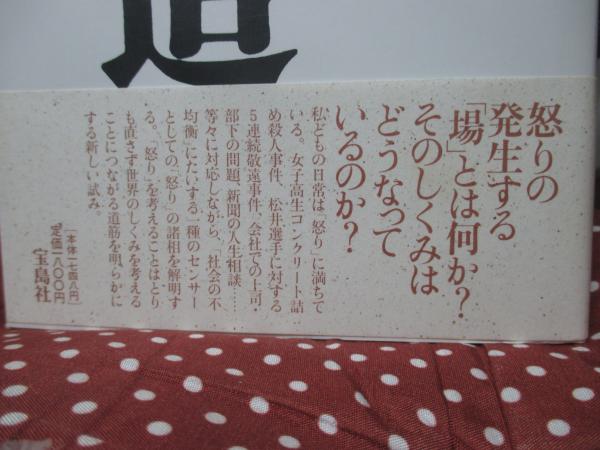 怒りの
発生する
「場」とは何か?
そのしくみは
どうなって
いるのか?
私どもの日常は「怒り」に満ちて
いる。女子高生コンクリート詰
め殺人事件、松井選手に対する
5連続敬遠事件、会社での上司・
部下の問題、新聞の人生相談……
等々に対応しながら、「社会の不
均衡」にたいする一種のセンサー
としての「怒り」の諸相を解明す
る。「怒り」を考えることはとり
も直さず世界のしくみを考える
ことにつながる道筋を明らかに
する新しい試み
[本体一七四八円]
定価一八〇〇円
宝島社